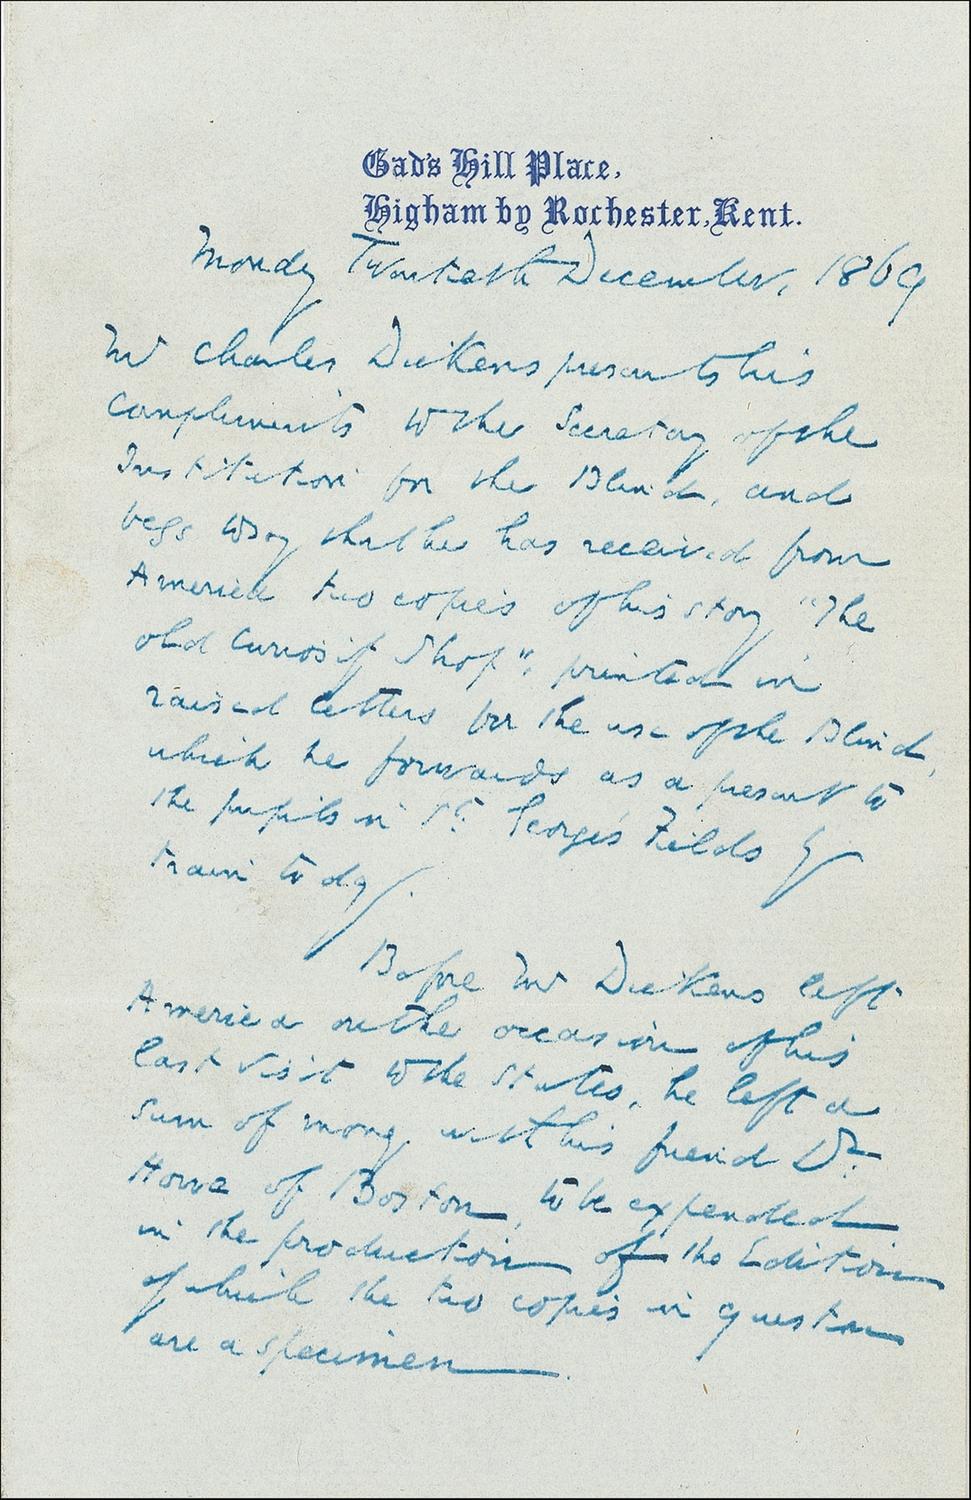 Gad's Hill Place,
Higham by Rochester, Kent.
Monday Twentieth December, 1869
Mr Charles Dickens presents his
compliments to the Secretary of the
Institution for the Blind, and
begs to say that he has received from
America two copies of his story "The
old Curiosity Shop", printed in
raised letters for the use of the Blind,
which he forwards as a present to
the pupils in St. George's Fields by
train to day.
Before Mr Dickens left
America on the occasion of his
last visit to the States, he left a
sum of money with his friend Dr.
Howe of Boston, to be expended
in the production of the Edition
of which the two copies in question
are a specimen.